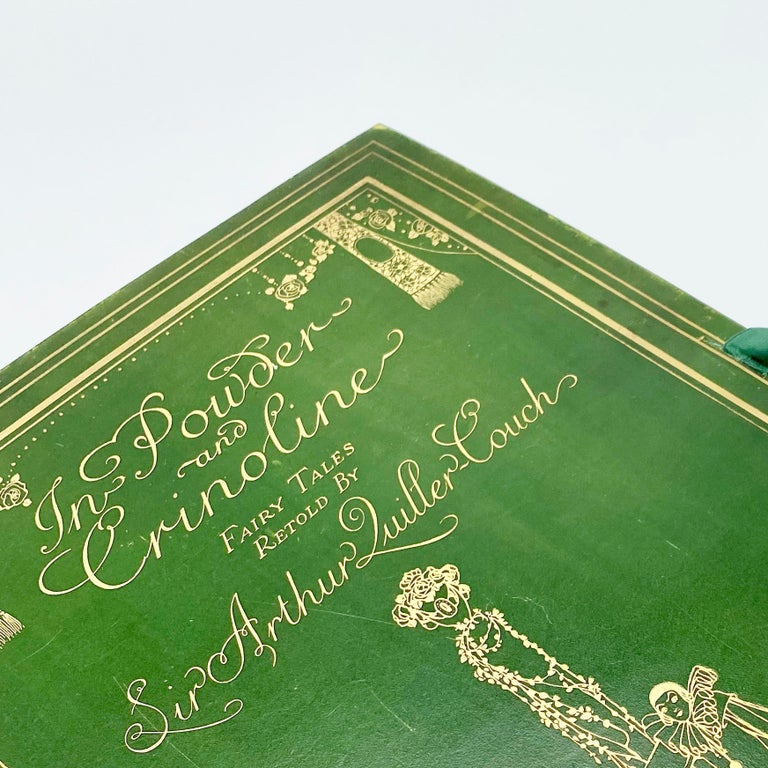 In Powder
and
Crinoline
FAIRY TALES
RETOLD BY
Sir Arthur Quiller-Couch